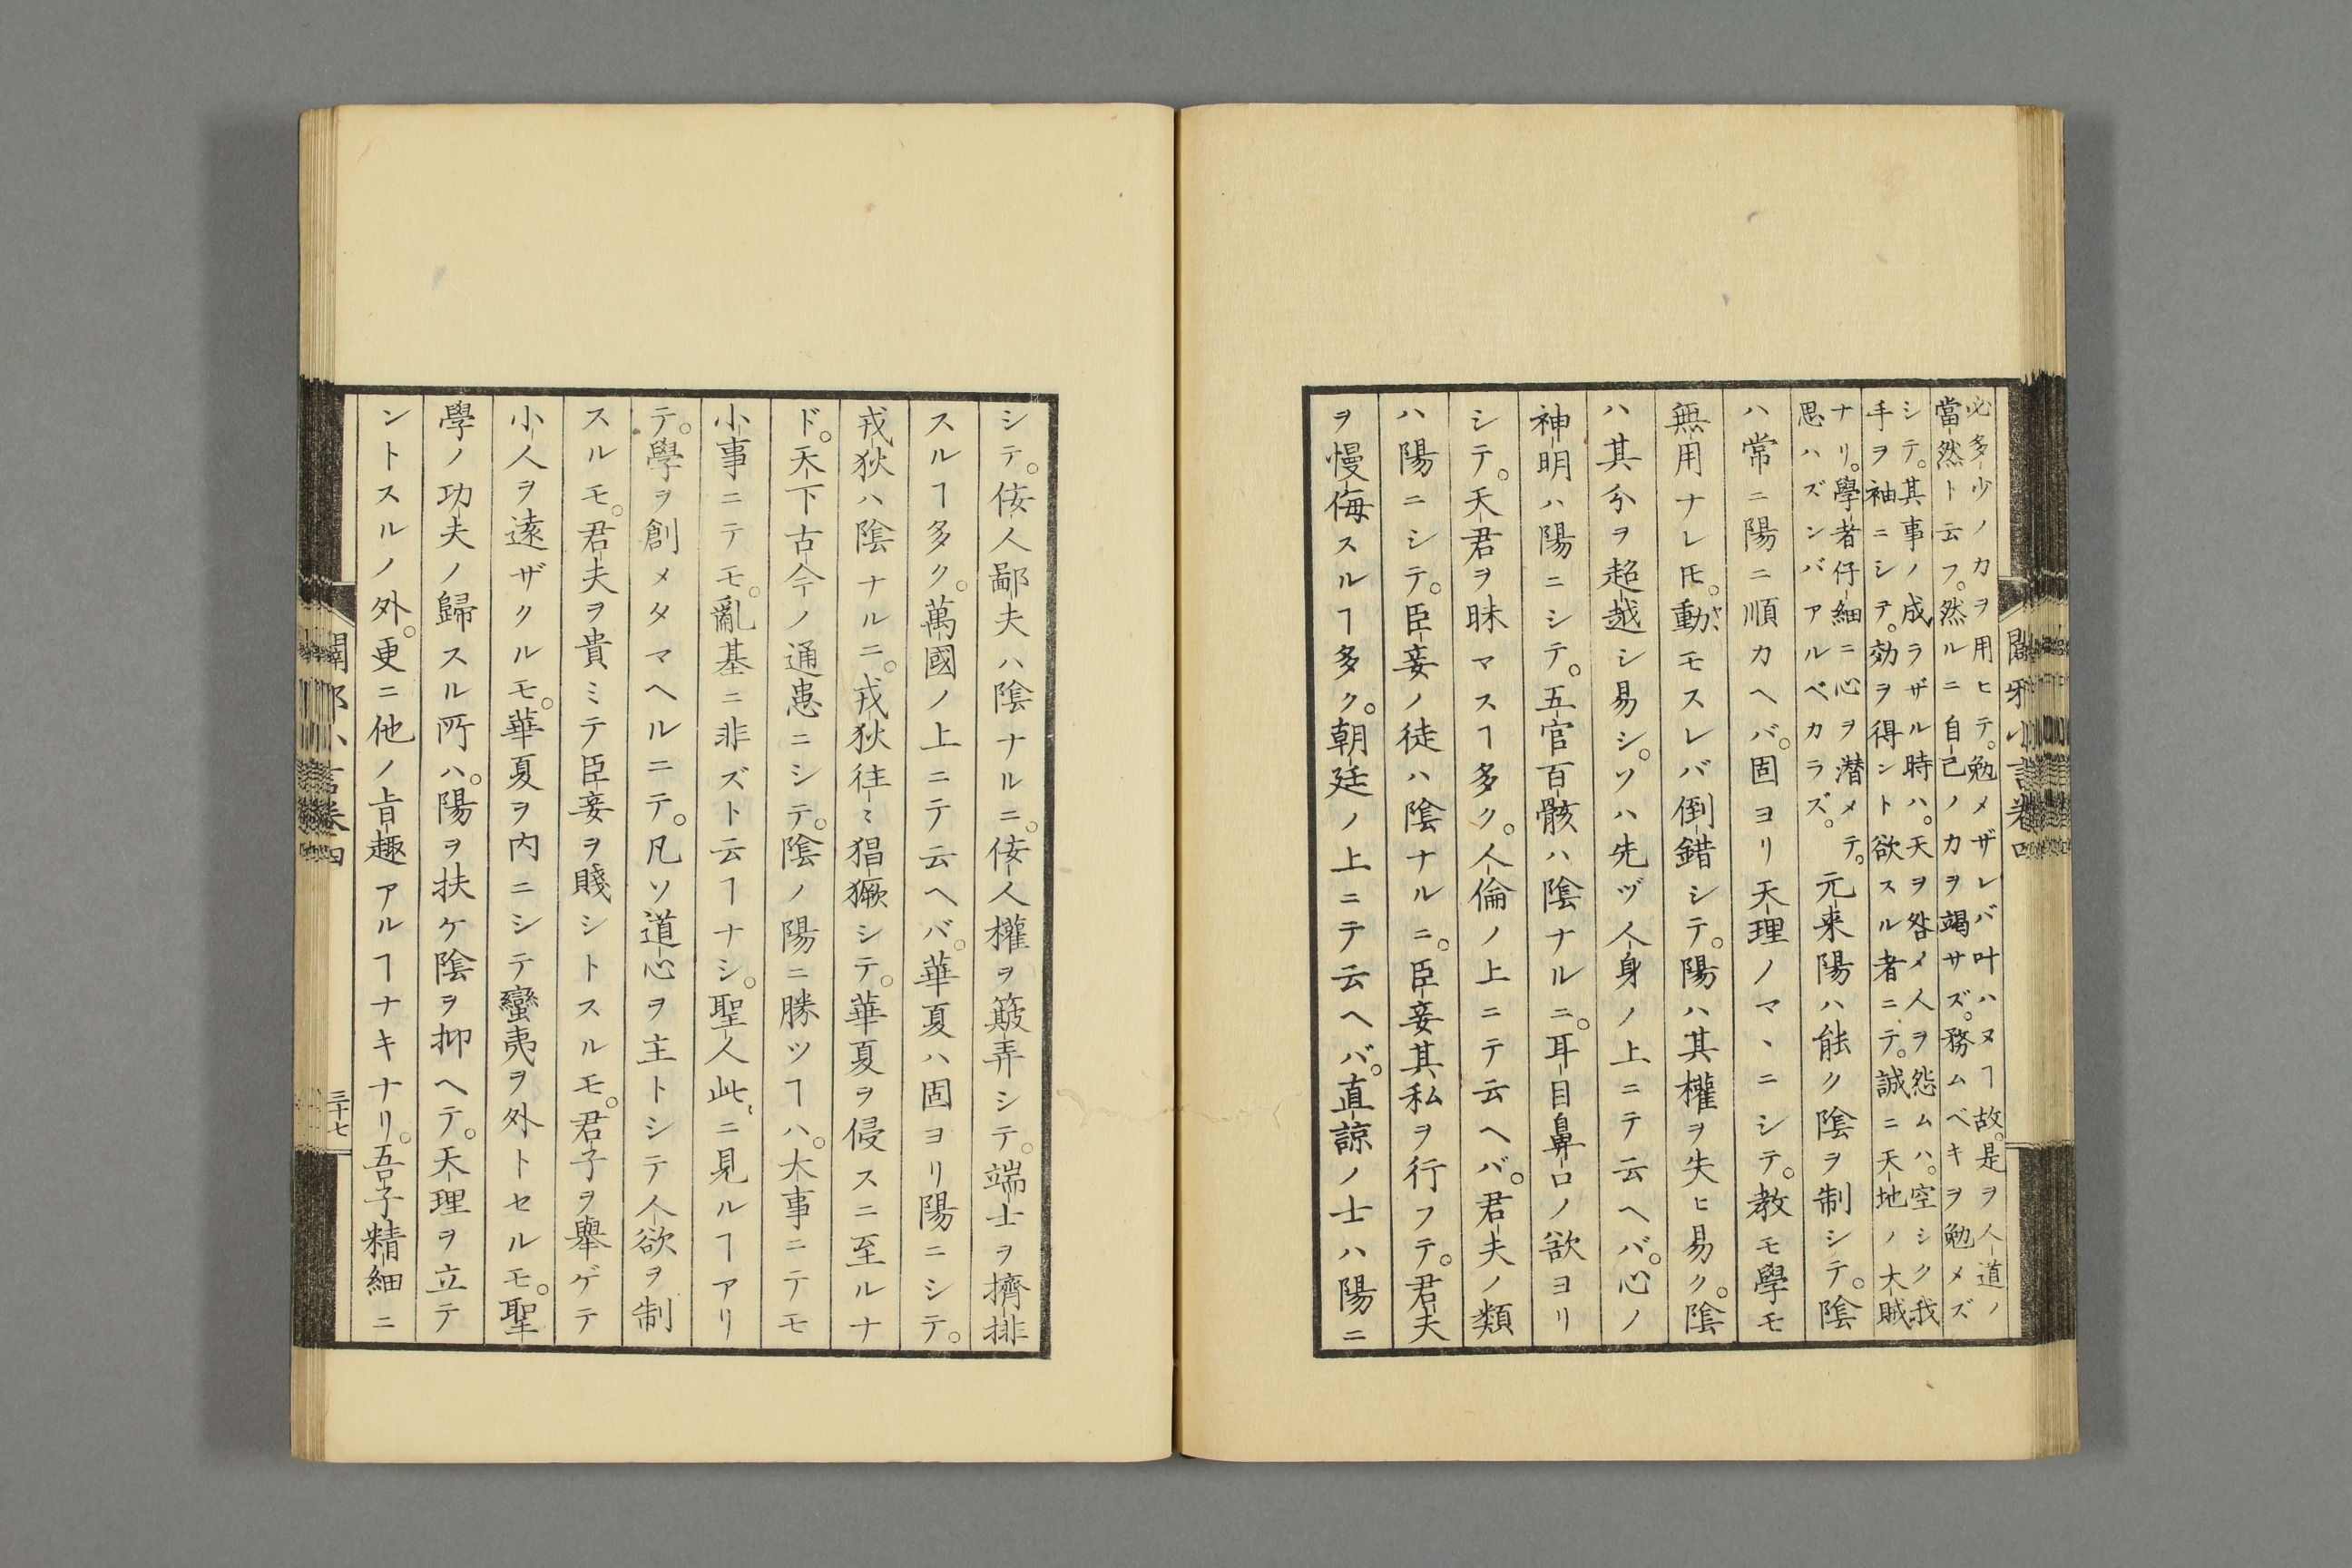 必多少ノ力ヲ用ヒテ。勉メザレバ叶ハヌヿ故。是ヲ人道ノ
當然ト云フ。然ルニ自己ノ力ヲ竭サズ。務ムベキヲ勉メズ
シテ。其事ノ成ラザル時ハ。天ヲ咎メ人ヲ怨ムハ。空シク我
手ヲ袖ニシテ。効ヲ得ント欲スル者ニテ。誠ニ天地ノ大賊
ナリ。學者仔細ニ心ヲ潜メテ。
思ハズンバアルベカラズ。
元来陽ハ能ク陰ヲ制シテ。陰
ハ常ニ陽ニ順カヘバ。固ヨリ天理ノマヽニシテ。教モ學モ
無用ナレ𪜈。動モスレバ倒錯シテ。陽ハ其權ヲ失ヒ易ク。陰
ハ其分ヲ超越シ易シ。ソハ先ヅ人身ノ上ニテ云ヘバ。心ノ
神明ハ陽ニシテ。五官百骸ハ陰ナルニ。耳目鼻口ノ欲ヨリ
シテ。天君ヲ昧マスヿ多ク。人倫ノ上ニテ云ヘバ。君夫ノ類
ハ陽ニシテ。臣妾ノ徒ハ陰ナルニ。臣妾其私ヲ行フテ。君夫
ヲ慢侮スルヿ多ク。朝廷ノ上ニテ云ヘバ。直諒ノ士ハ陽ニ
闢邪小言卷四
シテ。侫人鄙夫ハ陰ナルニ。侫人權ヲ簸弄シテ。端士ヲ擠排
スルヿ多ク。萬國ノ上ニテ云ヘバ。華夏ハ固ヨリ陽ニシテ。
戎狄ハ陰ナルニ。戎狄往〻猖獗シテ。華夏ヲ侵スニ至ルナ
ド。天下古今ノ通患ニシテ。陰ノ陽ニ勝ツヿハ。大事ニテモ
小事ニテモ。亂基ニ非ズト云ヿナシ。聖人此ニ見ルヿアリ
テ。學ヲ創メタマヘルニテ。凡ソ道心ヲ主トシテ人欲ヲ制
スルモ。君夫ヲ貴ミテ臣妾ヲ賤シトスルモ。君子ヲ舉ゲテ
小人ヲ遠ザクルモ。華夏ヲ内ニシテ蠻夷ヲ外トセルモ。聖
學ノ功夫ノ歸スル所ハ。陽ヲ扶ケ陰ヲ抑ヘテ。天理ヲ立テ
ントスルノ外。更ニ他ノ旨趣アルヿナキナリ。吾子精細ニ
闢邪小言卷四
三十七